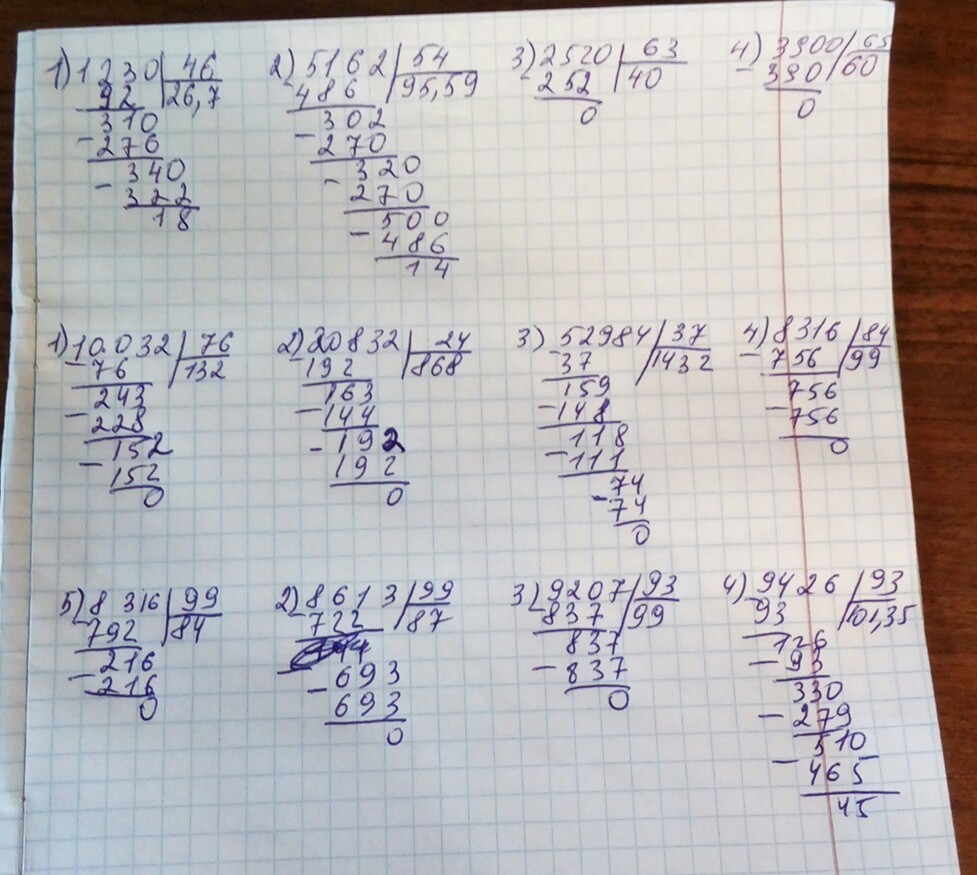 1) 1230 | 46
- 92 | 26,7
310
- 276
340
- 322
18
2) 5162 | 54
- 486 | 95,59
302
- 270
320
- 270
500
- 486
14
3) 2520 | 63
- 252 | 40
0
4) 3900 | 65
- 390 | 60
0
1) 10.032 | 76
- 76 | 132
243
- 228
152
- 152
0
2) 20832 | 24
- 192 | 868
163
- 144
192
- 192
0
3) 52984 | 37
- 37 | 1432
159
- 148
118
- 111
74
- 74
0
4) 8316 | 84
- 756 | 99
756
- 756
0
5) 8316 | 99
- 792 | 84
216
- 216
0
2) 8613 | 99
- 722 | 87
693
- 693
0
3) 9207 | 93
- 837 | 99
837
- 837
0
4) 9426 | 93
- 93 | 101,35
126
- 93
330
- 279
510
- 465
45